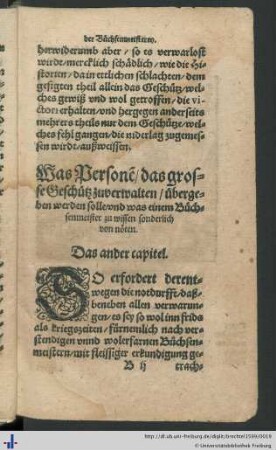 der Büchsenmeisterey.
herwiderumb aber / so es verwarlost
wirdt / mercklich schädlich / wie die Hi-
storien / da in etlichen schlachten / dem
gesigten theil allein das Geschütz / wel-
ches gewiß vnd wol getroffen / die vi-
ctori erhalten / vnd hergegen anderseits
mehrers theils nur dem Geschütze / wel-
ches fehl gangen / die niderlag zugemes-
sen wirdt / außweisen.
Was Personē / das gros-
se Geschütz zuverwalten / überge-
ben werden solle / vnd was einem Büch-
senmeister zu wissen sonderlich
von nöten.
Das ander capitel.
SO erfordert derent-
wegen die notdurfft / daß
beneben allen verwarun-
gen / es sey so wol inn frids
als kriegszeiten / fürnemlich nach ver-
stendigen vnnd wolerfarnen Büchsen-
meistern / mit fleissiger erkundigung ge-
B ij
trach-
http://dl.ub.uni-freiburg.de/diglit/brechtel1599/0019
© Universitätsbibliothek Freiburg